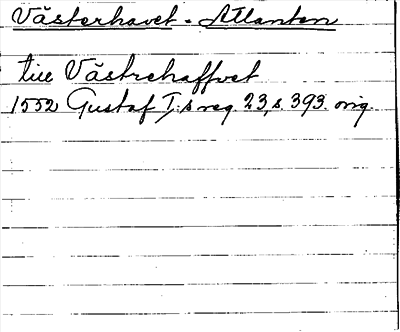 Västerhavet - Atlanten
till Västrehaffvet
1552 Gustaf I:s reg. 23, s. 393. orig.